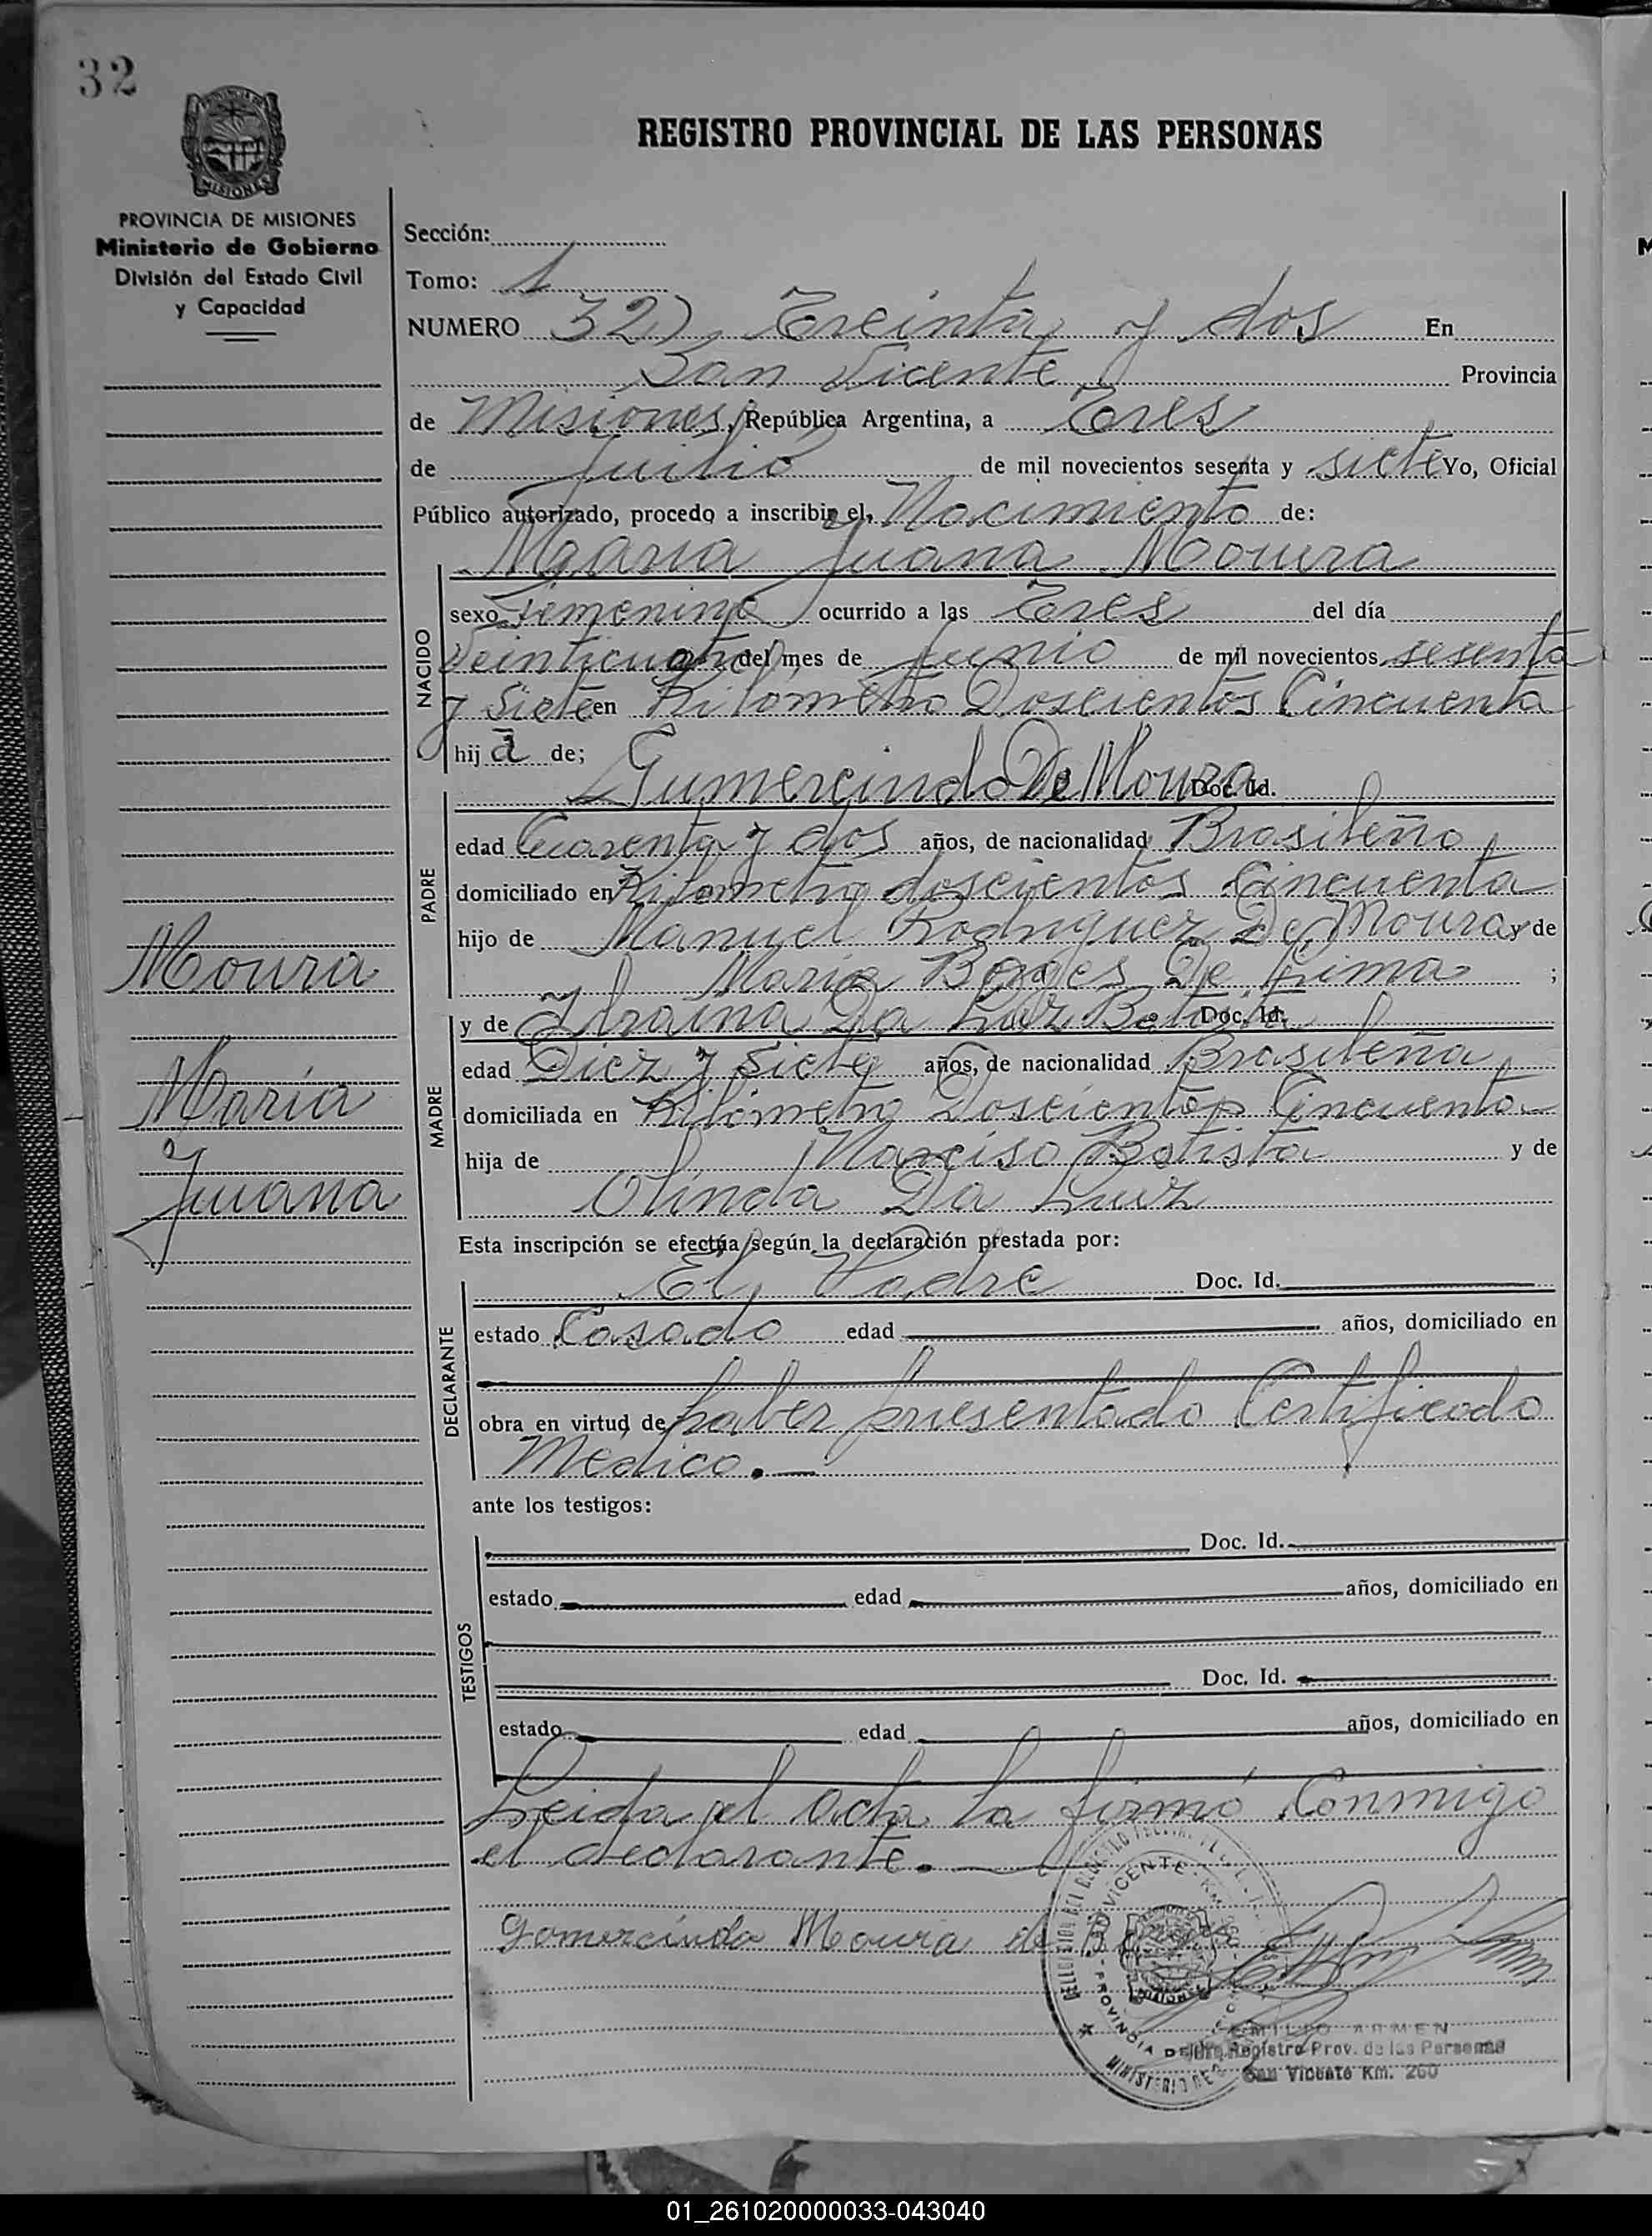 32
REGISTRO PROVINCIAL DE LAS PERSONAS
MISIONES
PROVINCIA DE MISIONES
Ministerio de Gobierno
División del Estado Civil
y Capacidad
Sección:
Tomo: 1
NUMERO 32) Treinta y dos En
San Vicente Provincia
de Misiones, República Argentina, a Tres
de Julio de mil novecientos sesenta y siete Yo, Oficial
Público autorizado, procedo a inscribir el, Nacimiento de:
Maria Juana Moura
NACIDO
sexo Femenino ocurrido a las Tres del día
Veinticuatro del mes de Junio de mil novecientos sesenta
y Siete en Kilómetro Doscientos Cincuenta
hija de;
Gumercindo De Moura Doc. Id.
PADRE
edad Cuarenta y dos años, de nacionalidad Brasileño
domiciliado en Kilometro doscientos Cincuenta
hijo de Manuel Rodriguez De Moura y de
Maria Borges De Lima ;
y de Da Luz Batista Doc. Id.
MADRE
edad Diez y Siete años, de nacionalidad Brasileña
domiciliada en Kilómetro Doscientos Cincuenta
hija de Narciso Batista y de
Olinda Da Luz
Moura
Maria
Juana
Esta inscripción se efectúa según la declaración prestada por:
El Padre Doc. Id.
DECLARANTE
estado Casado edad años, domiciliado en
obra en virtud de haber presentado Certificado
Medico.
ante los testigos:
TESTIGOS
Doc. Id.
estado edad años, domiciliado en
Doc. Id.
estado edad años, domiciliado en
Leida el acta la firmó Conmigo
el declarante.
Gomercindo Moura de
EMILIO ARMEN
Registro Prov. de las Personas
San Vicente Km. 260
01_261020000033-043040